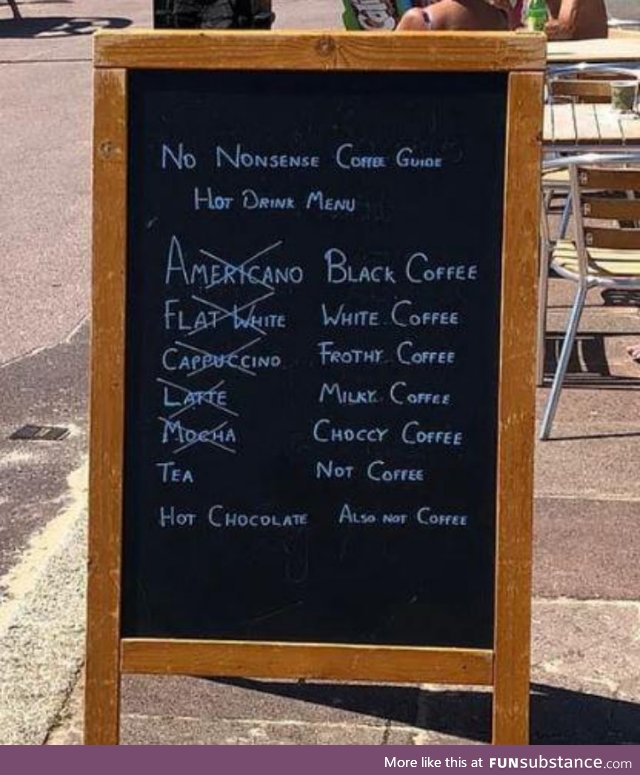 No Nonsense Coffee Guide
Hot Drink Menu
Americano Black Coffee
Flat White White Coffee
Cappuccino Frothy Coffee
Latte Milky Coffee
Mocha Choccy Coffee
Tea Not Coffee
Hot Chocolate Also not Coffee
More like this at FUNsubstance.com